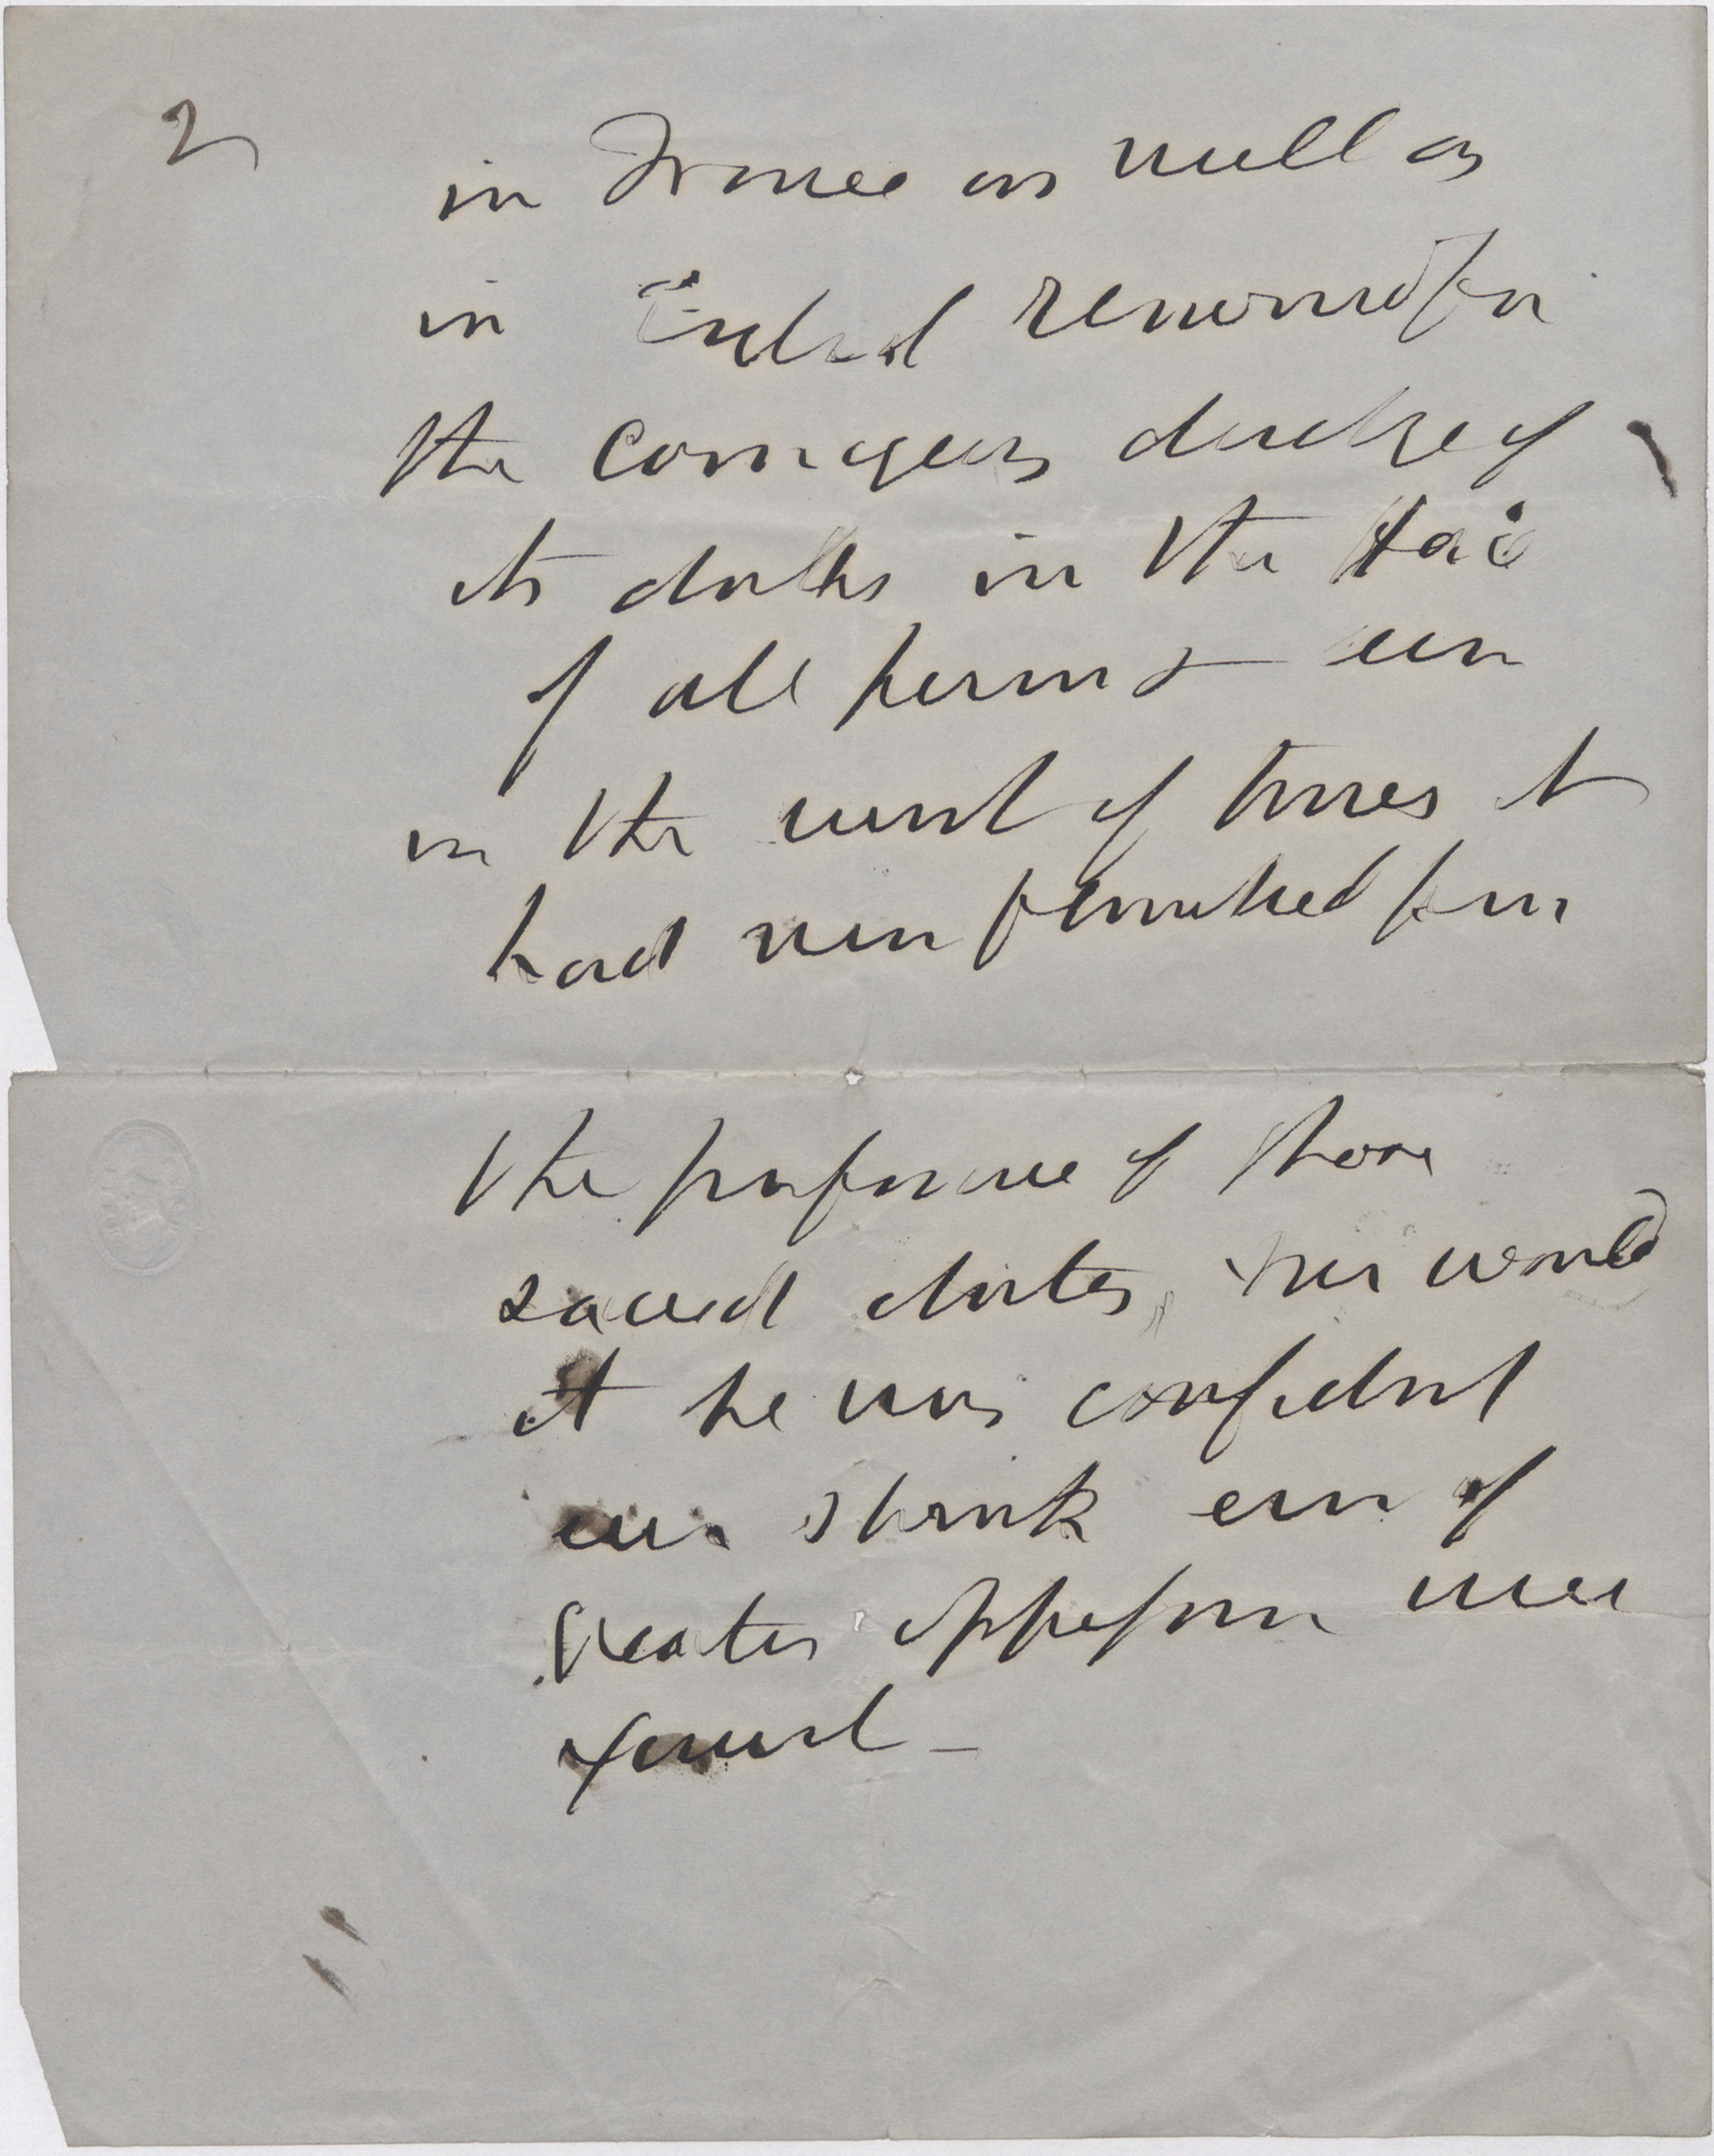 2
in France as well as
in England renowned for
the courageous discharge of
its duties in the face
of all perils & even
in the worst of times it
had never flinched from
the performance of those
sacred duties, nor would
it he was confident
ever shrink even if
greater oppression were
found –